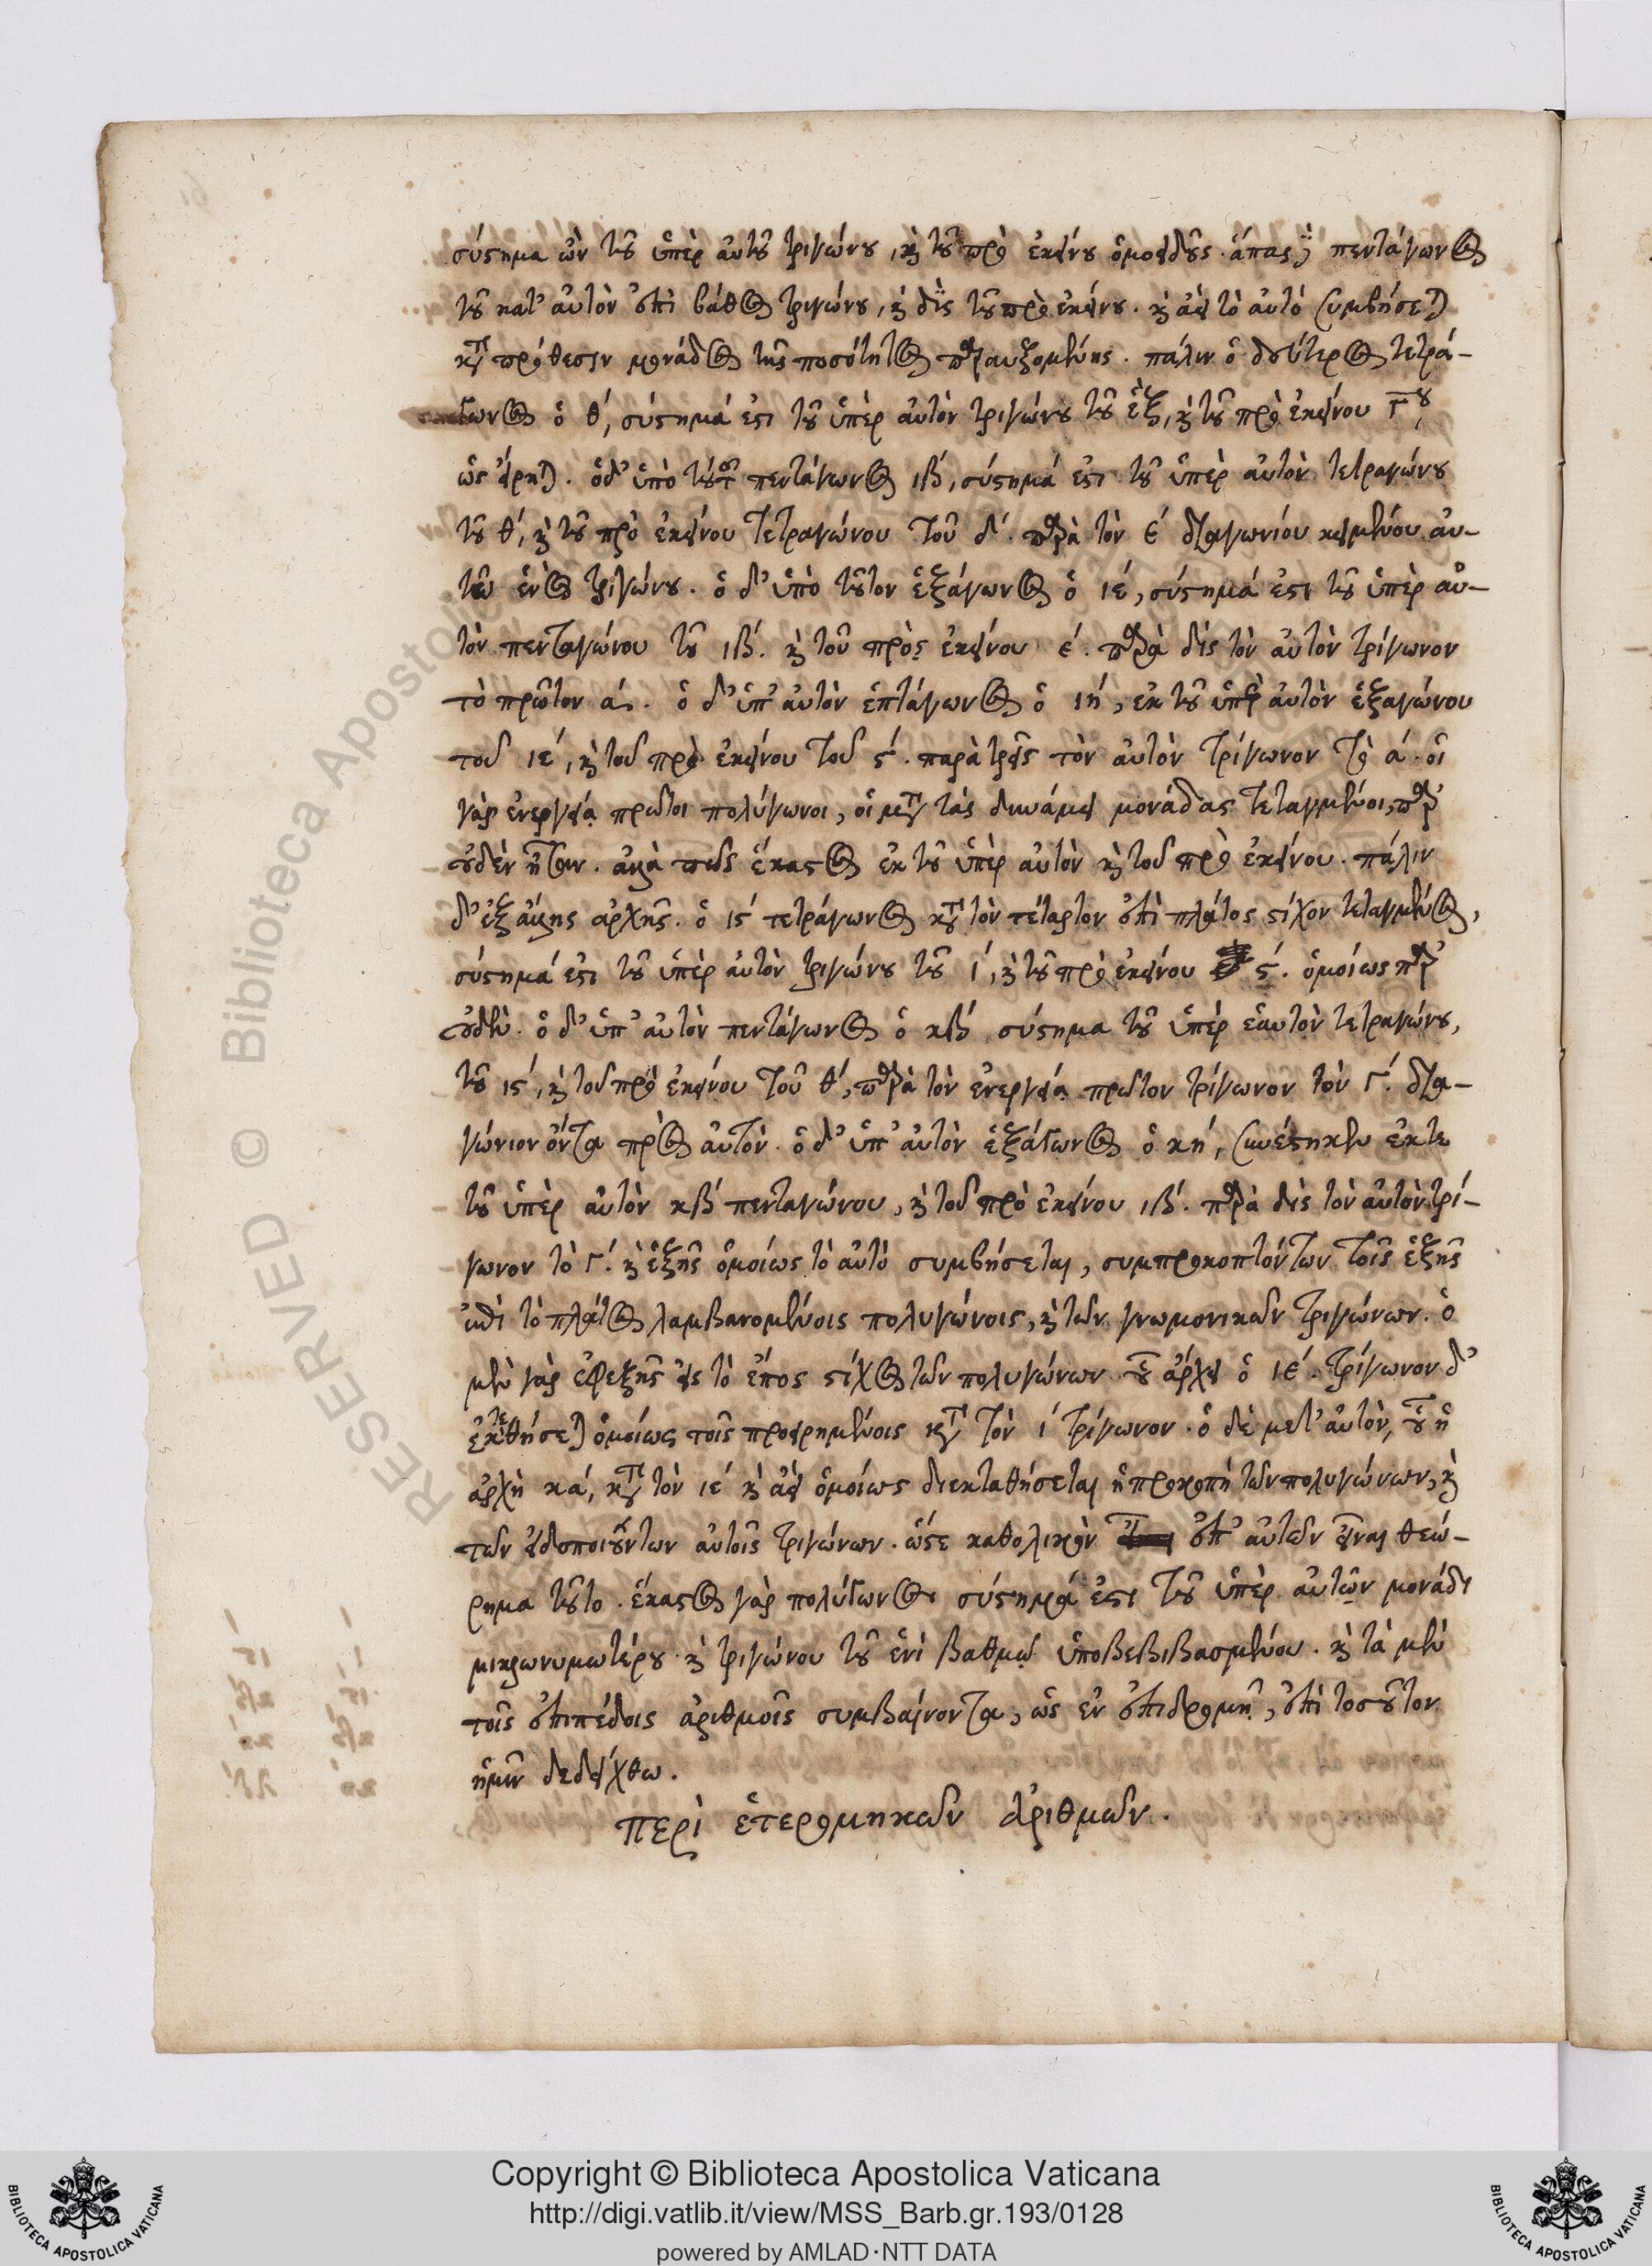 σύστημα ὢν τοῦ ὑπὲρ αὐτοῦ τριγώνου, καὶ τοῦ πρὸ ἐκείνου ὁμοειδοῦς. ἅπας δὲ πεντάγωνος
τοῦ κατ' αὐτὸν ἐπὶ βάθος τριγώνου, καὶ δὶς τοῦ πρὸ ἐκείνου. καὶ ἀεὶ τὸ αὐτὸ συμβήσεται
κατὰ πρόθεσιν μονάδος τῆς ποσότητος παραυξομένης. πάλιν ὁ δεύτερος τετρά-
γωνος ὁ θ΄, σύστημά ἐστι τοῦ ὑπὲρ αὐτὸν τριγώνου τοῦ ἓξ, καὶ τοῦ πρὸ ἐκείνου
ὡς εἴρηται. ὁ δ' ὑπὸ τοῦτον πεντάγωνος ιβ΄, σύστημά ἐστι τοῦ ὑπὲρ αὐτὸν τετραγώνου
τοῦ θ΄, καὶ τοῦ πρὸ ἐκείνου τετραγώνου τοῦ δ΄. παρὰ τὸν διαγωνίου κειμένου αὐ-
τῷ ἑνὸς τριγώνου. ὁ δ' ὑπὸ τοῦτον ἑξάγωνος ὁ ιέ, σύστημά ἐστι τοῦ ὑπὲρ αὐ-
τὸν πενταγώνου τοῦ ιβ΄. καὶ τοῦ πρὸς ἐκείνου έ. παρὰ δὶς τὸν αὐτὸν τρίγωνον
τὸ πρῶτον ά. ὁ δ' ὑπ' αὐτὸν ἑπτάγωνος ὁ ιή, ἐκ τοῦ ὑπὲρ αὐτὸν ἑξαγώνου
τοῦ ιέ, καὶ τοῦ πρὸ ἐκείνου τοῦ ϛ΄. παρὰ τρεῖς τὸν αὐτὸν τρίγωνον τὸ ά. οἱ
γὰρ ἐνεργείᾳ πρῶτοι πολύγωνοι, οἱ μετὰ τὰς δυνάμει μονάδας τεταγμένοι, παρ'
οὐδὲν ἥττων. ἀλλὰ πῶς ἕκαστος ἐκ τοῦ ὑπὲρ αὐτὸν καὶ τοῦ πρὸ ἐκείνου. πάλιν
δ' ἐξ ἄλλης ἀρχῆς. ὁ ιϛ΄ τετράγωνος κατὰ τὸν τέταρτον ἐπὶ πλάτος στίχον τεταγμένος,
σύστημά ἐστι τοῦ ὑπὲρ αὐτὸν τριγώνου τοῦ ί, καὶ τοῦ πρὸ ἐκείνου ϛ΄. ὁμοίως παρ'
οὐδέν. ὁ δ' ὑπ' αὐτὸν πεντάγωνος ὁ κβ΄ σύστημα τοῦ ὑπὲρ ἑαυτὸν τετραγώνου,
τοῦ ιϛ΄, καὶ τοῦ πρὸ ἐκείνου τοῦ θ΄, παρὰ τὸν ἐνεργείᾳ πρῶτον τρίγωνον τὸν γ΄. δια-
γώνιον ὄντα πρὸς αὐτόν. ὁ δ' ὑπ' αὐτὸν ἑξάγωνος ὁ κή, συνέστηκεν ἔκ τε
τοῦ ὑπὲρ αὐτὸν κβ΄ πενταγώνου, καὶ τοῦ πρὸ ἐκείνου ιβ΄. παρὰ δὶς τὸν αὐτὸν τρί-
γωνον τὸ γ΄. καὶ ἑξῆς ὁμοίως τὸ αὐτὸ συμβήσεται, συμπροκοπτόντων τοῖς ἑξῆς
ἐπὶ τὸ πλάτος λαμβανομένοις πολυγώνοις, καὶ τῶν γνωμονικῶν τριγώνων. ὁ
μὲν γὰρ ἐφεξῆς εἰς τὸ ἔπος στίχος τῶν πολυγώνων οὗ ἄρχει ὁ ιέ. τρίγωνον δ'
ἐκτεθήσεται ὁμοίως τοῖς προειρημένοις κατὰ τὸν ί τρίγωνον. ὁ δὲ μετ' αὐτὸν, οὗ ἡ
ἀρχὴ κά, κατὰ τὸν ιέ καὶ ἀεὶ ὁμοίως διεκταθήσεται ἡ προκοπὴ τῶν πολυγώνων, καὶ
τῶν εἰδοποιούντων αὐτοῖς τριγώνων. ὥστε καθολικὸν ἐπ' αὐτῶν εἶναι θεώ-
ρημα τοῦτο. ἕκαστος γὰρ πολύγωνος σύστημά ἐστι τοῦ ὑπὲρ αὐτῶν μονάδι
μικρωνυμωτέρου καὶ τριγώνου τοῦ ἑνὶ βαθμῷ ὑποβεβιβασμένου. καὶ τὰ μὲν
τοῖς ἐπιπέδοις ἀριθμοῖς συμβαίνοντα, ὡς ἐν ἐπιδρομῇ, ἐπὶ τοσοῦτον
ἡμῖν δεδείχθω.
περὶ ἑτερομηκῶν ἀριθμῶν.
RESERVED © Biblioteca Apostolica
Copyright © Biblioteca Apostolica Vaticana
http://digi.vatlib.it/view/MSS_Barb.gr.193/0128
powered by AMLAD·NTT DATA
BIBLIOTECA APOSTOLICA VATICANA
BIBLIOTECA APOSTOLICA VATICANA